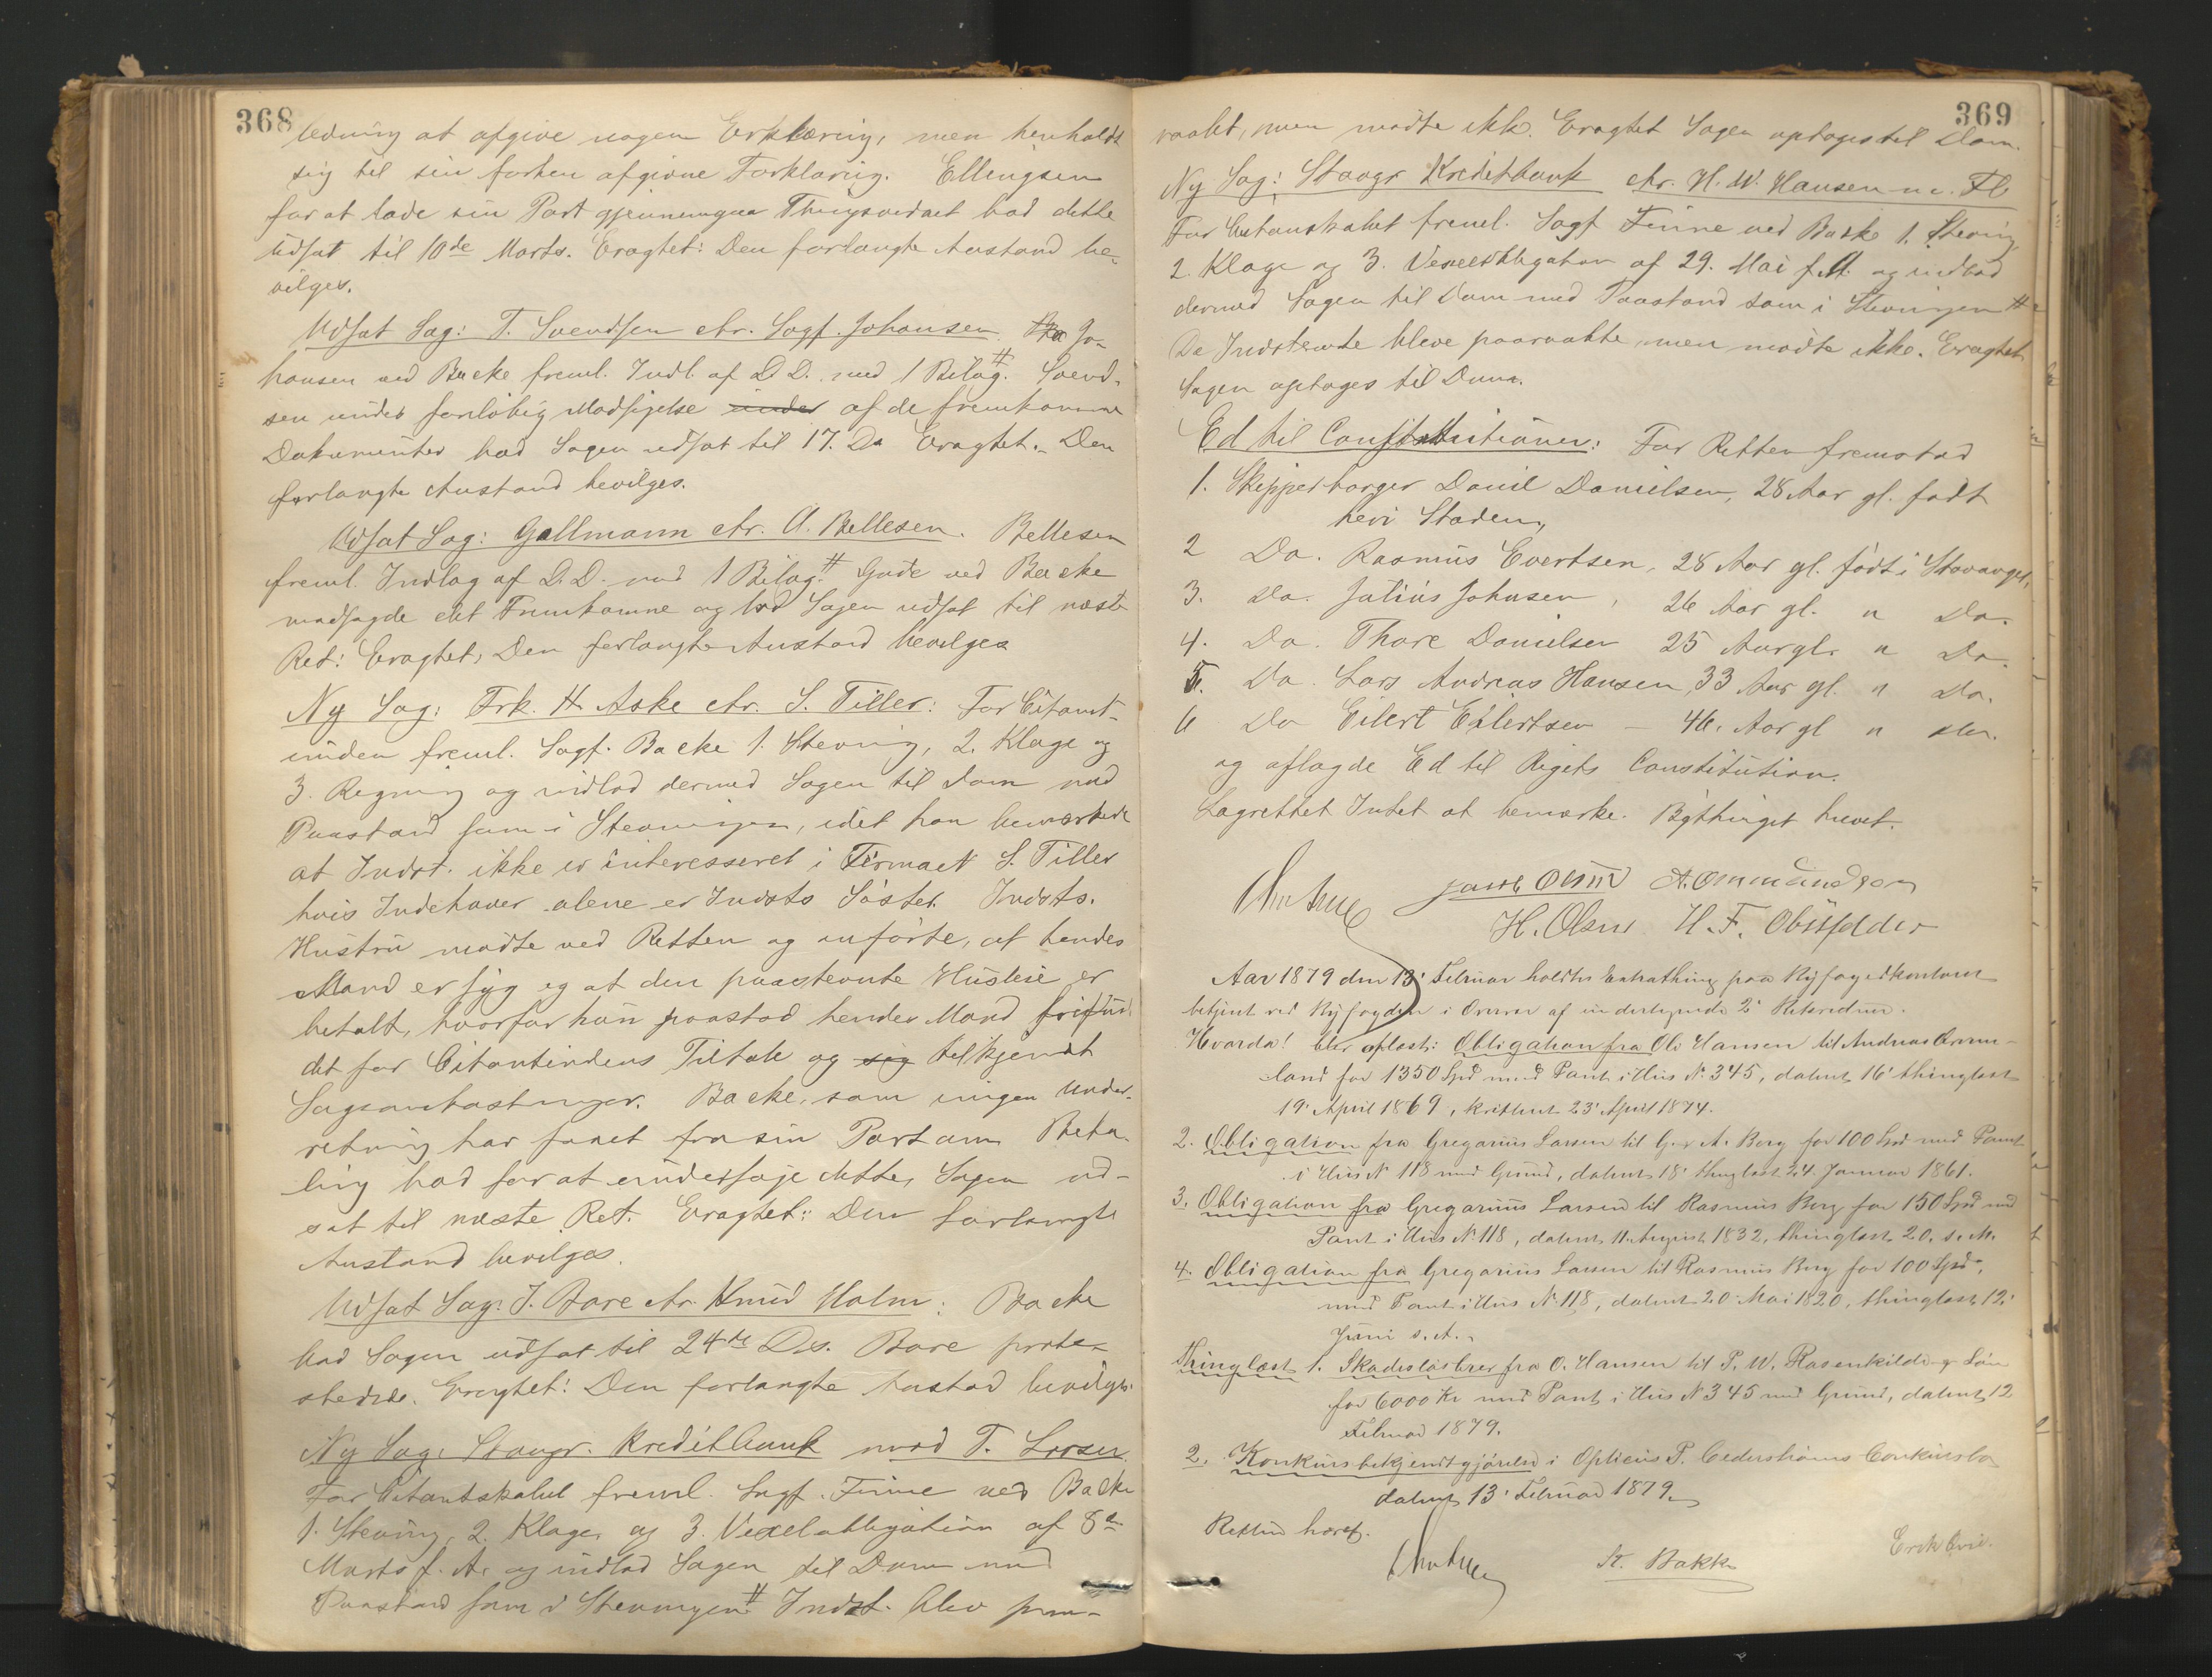 368
ledning at afgive nogen Erklæring, men henholdt
sig til sin forhen afgivne Forklaring. Ellingsen
for at lade sin Part gjennemgaa Thingsvidnet bad dette
udsat til 10de Marts. Eragtet: Den forlangte Anstand be-
vilges.
Udsat Sag: T. Svendsen ctr. Sagf. Johansen. Jo-
hansen ved Backe freml. Indl. af D. D. med 1 Bilag # Svend-
sen under foreløbig Modsigelse under af de fremkomne
Dokumenter bad Sagen udsat til 17. Ds Eragtet: Den
forlangte Anstand bevilges.
Udsat Sag: Gallmann ctr. A. Bellesen. Bellesen
freml. Indlæg af D. D. med 1 Bilag # Gade ved Backe
modsagde det Fremkomne og bad Sagen udsat til næste
Ret: Eragtet: Den forlangte Anstand bevilges
Ny Sag: Frk. H. Aske ctr. S. Tiller: For Citant-
inden freml. Sagf. Backe 1. Stevning, 2. Klage og
3. Regning og indlod dermed Sagen til Dom med
Paastand som i Stevningen, idet han bemærkede
at Indst. ikke er interesseret i Firmaet S. Tiller
hvis Indehaver alene er Indsts Søster. Indsts.
Hustru mødte ved Retten og anførte, at hendes
Mand er syg og at den paastevnte Husleie er
betalt, hvorfor hun paastod hendes Mand frifun-
det for Citantindens Tiltale og sig tilkjendt
Sagsomkostninger. Backe, som ingen Under-
retning har faaet fra sin Part om Beta-
ling bad for at undersøge dette, Sagen ud-
sat til næste Ret. Eragtet: Den forlangte
Anstand bevilges.
Udsat Sag: J. Bore ctr. Knud Holm: Backe
bad Sagen udsat til 24de Ds. Bore prote-
sterede. Eragtet: Den forlangte Anstad bevilges.
Ny Sag: Stavgr. Kreditbank mod T. Larsen.
For Citantskabet freml. Sagf. Finne ved Backe
1. Stevning, 2. Klage, og 3. Vexelobligation af 8de
Marts f. A. og indlod Sagen til Dom med
Paastand som i Stevningen # Indst. blev paa-
369
raabt, men mødte ikke. Eragtet Sagen optages til Dom.
Ny Sag: Stavgr Kreditbank ctr. H. W. Hansen m. Fl
For Citantskabet freml. Sagf Finne ved Backe 1. Stevning
2. Klage og 3. Vexelobligation af 29. Mai f. A. og indlod
dermed Sagen til Dom med Paastand som i Stevningen #
De Indstevnte bleve paaraabte, men mødte ikke. Eragtet
Sagen optages til Dom.
Ed til Constitutionen: For Retten fremstod
1. Skipperborger Daniel Danielsen, 28 Aar gl. født
heri Staden,
2 Do. Rasmus Evertsen, 28 Aar gl. født i Stavanger,
3. Do. Julius Johnsen, 26 Aar gl. " Do.
4. Do. Thore Danielsen 25 Aar gl. " Do.
5. Do. Lars Andreas Hansen, 33 Aar gl. " Do.
6 Do Eilert Eilertsen – 46. Aar gl " Do.
og aflagde Ed til Rigets Constitution.
Lagrettet Intet at bemærke. Bythinget hævet.
Jacob Olsen A. Ommundsen
H. Olsen H. F. Obstfelder
Aar 1879 den 13' Februar holdtes Extrathing paa Byfogedkontoret
betjent ved Byfogden i Overvær af undertegnede 2' Retsvidner.
Hvorda! blev aflæst: Obligation fra Ole Hansen til Andreas
land for 1350 Spd med Pant i Hus No. 345, dateret 16' thinglæst
19' April 1869, kvitteret 23' April 1874.
2. Obligation fra Gregarius Larsen til G. A. Berg for 100 Spd med Pant
i Hus No 118 med Grund, dateret 18' thinglæst 24. Januar 1861.
3. Obligation fra Gregarius Larsen til Rasmus Berg for 150 Spd med
Pant i Hus No. 118, dateret 11. August 1832, thinglæst 20. s. M.
4. Obligation fra Gregarius Larsen til Rasmus Berg for 100 Spd.
med Pant i Hus No. 118, dateret 20 Mai 1820, thinglæst 12'
Juni s. A.
Thinglæst 1. Skadesløsbrev fra O. Hansen til P. W. Rosenkilde & Søn
for 6000 Kr med Pant i Hus No 345 med Grund, dateret 12
Februar 1879.
2. Konkursbekjendtgjørelse i Opticus P. Cederstrøms Conkursbo
dateret 13' Februar 1879.
Retten hævet.
K. Bakke